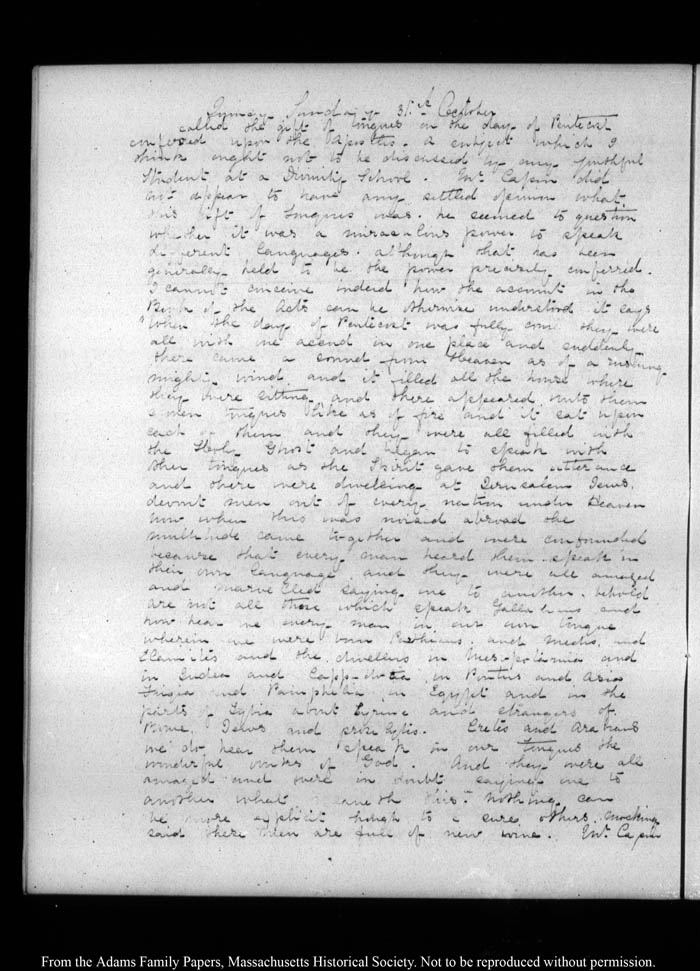 Quincy Sunday 31st October
called the gift of tongues on the day of Pentecost
conferred upon the Apostles. A subject which I
think ought not to be discussed by any youthful
Student at a Divinity School. Mr. Capen did
not appear to have any settled opinion what
this gift of tongues was. he seemed to question
whether it was a miraculous power to speak
different languages. although that has been
generally held to be the power precisely conferred.
I cannot conceive indeed how the account in the
Book of the Acts can be otherwise understood it says
"When the day of Pentecost was fully come they were
all with one accord in one place and suddenly
there came a sound from Heaven as of a rushing
mighty wind, and it filled all the house where
they were sitting and there appeared unto them
cloven tongues like as of fire and it sat upon
each of them and they were all filled with
the Holy Ghost and began to speak with
other tongues as the Spirit gave them utterance
and there were dwelling at Jerusalem Jews,
devout men out of every nation under Heaven
now when this was noised abroad the
multitude came together and were confounded
because that every man heard them speak in
their own language. and they were all amazed
and marvelled saying one to another. behold
are not all these which speak Galleleans and
how hear we every man in our own tongue
wherein we were born Parthians. and Medes, and
Elamites and the dwellers in Mesopotamia and
in Judea and Cappadocia, in Pontus and Asia
Frigia and Pamphilia, in Egypt and in the
parts of Lybia about Cyrene and strangers of
Rome, Jews and proselytes. Cretes and Arabians
we do hear them speak in our tongues the
wonderful works of God. And they were all
amazed and were in doubt saying one to
another what meaneth this." nothing can
be more explicit though to be sure others mocking
said these men are full of new wine. Mr. Capen
From the Adams Family Papers, Massachusetts Historical Society. Not to be reproduced without permission.